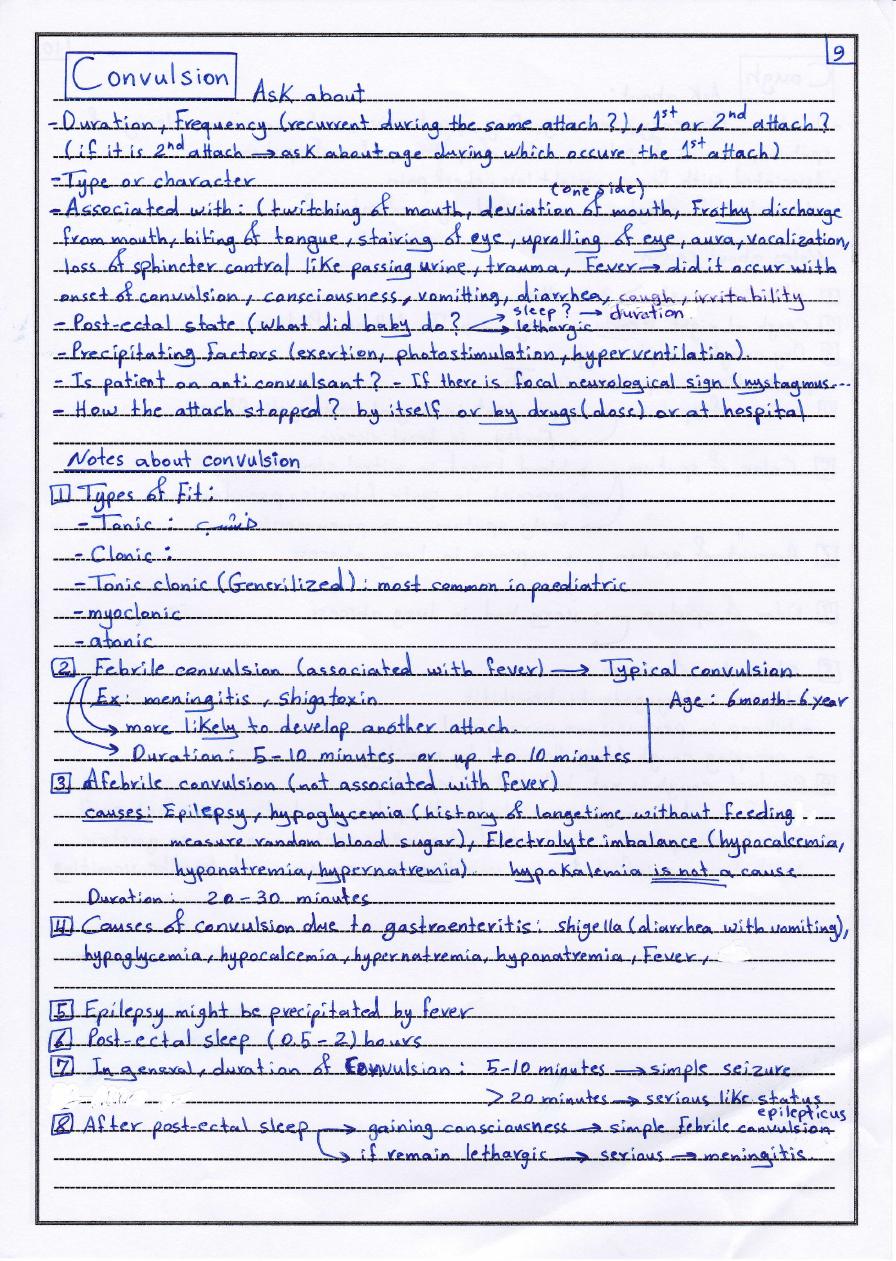 9
Convulsion
Ask about
- Duration, Frequency (recurrent during the same attach?), 1st or 2nd attach?
(if it is 2nd attach → ask about age during which occure the 1st attach)
- Type or character
(one side)
- Associated with: (twitching of mouth, deviation of mouth, Frothy discharge
from mouth, biting of tongue, stairing of eye, uprolling of eye, aura, vocalization,
loss of sphincter control like passing urine, trauma, Fever → did it occur with
onset of convulsion, consciousness, vomitting, diarrhea, cough, irritability
- Post-ectal state (What did baby do? → sleep? → duration
→ lethargic
- Precipitating factors (exertion, photostimulation, hyperventilation).
- Is patient on anti convulsant? - If there is focal neurological sign (nystagmus...
- How the attach stopped? by itself or by drugs (dose) or at hospital
Notes about convulsion
1 Types of Fit:
- Tonic :
- Clonic :
- Tonic clonic (Generilized) : most common in paediatric
- myoclonic
- atonic
2 Febrile convulsion (associated with fever) → Typical convulsion
Ex: meningitis, Shigatoxin Age: 6month-6year
→ more likely to develop another attach.
→ Duration: 5-10 minutes or up to 10 minutes
3 Afebrile convulsion (not associated with fever)
causes: Epilepsy, hypoglycemia (history of longetime without feeding
measure random blood sugar), Electrolyte imbalance (hypocalcemia,
hyponatremia, hypernatremia) hypokalemia is not a cause
Duration: 20-30 minutes
4 Causes of convulsion due to gastroenteritis: shigella (diarrhea with vomiting),
hypoglycemia, hypocalcemia, hypernatremia, hyponatremia, Fever,
5 Epilepsy might be precipitated by fever
6 Post-ectal sleep (0.5-2) hours
7 In general, duration of Convulsion: 5-10 minutes → simple seizure
> 20 minutes → serious like status
epilepticus
8 After post-ectal sleep → gaining consciousness → simple febrile convulsion
→ if remain lethargic → serious → meningitis.